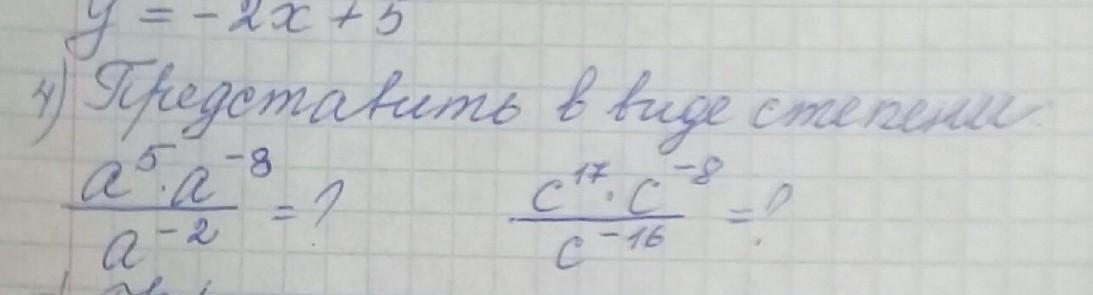 y = -2x + 5
4) Представить в виде степени
a⁵·a⁻⁸ / a⁻² = ? c¹⁷·c⁻⁸ / c⁻¹⁶ = ?